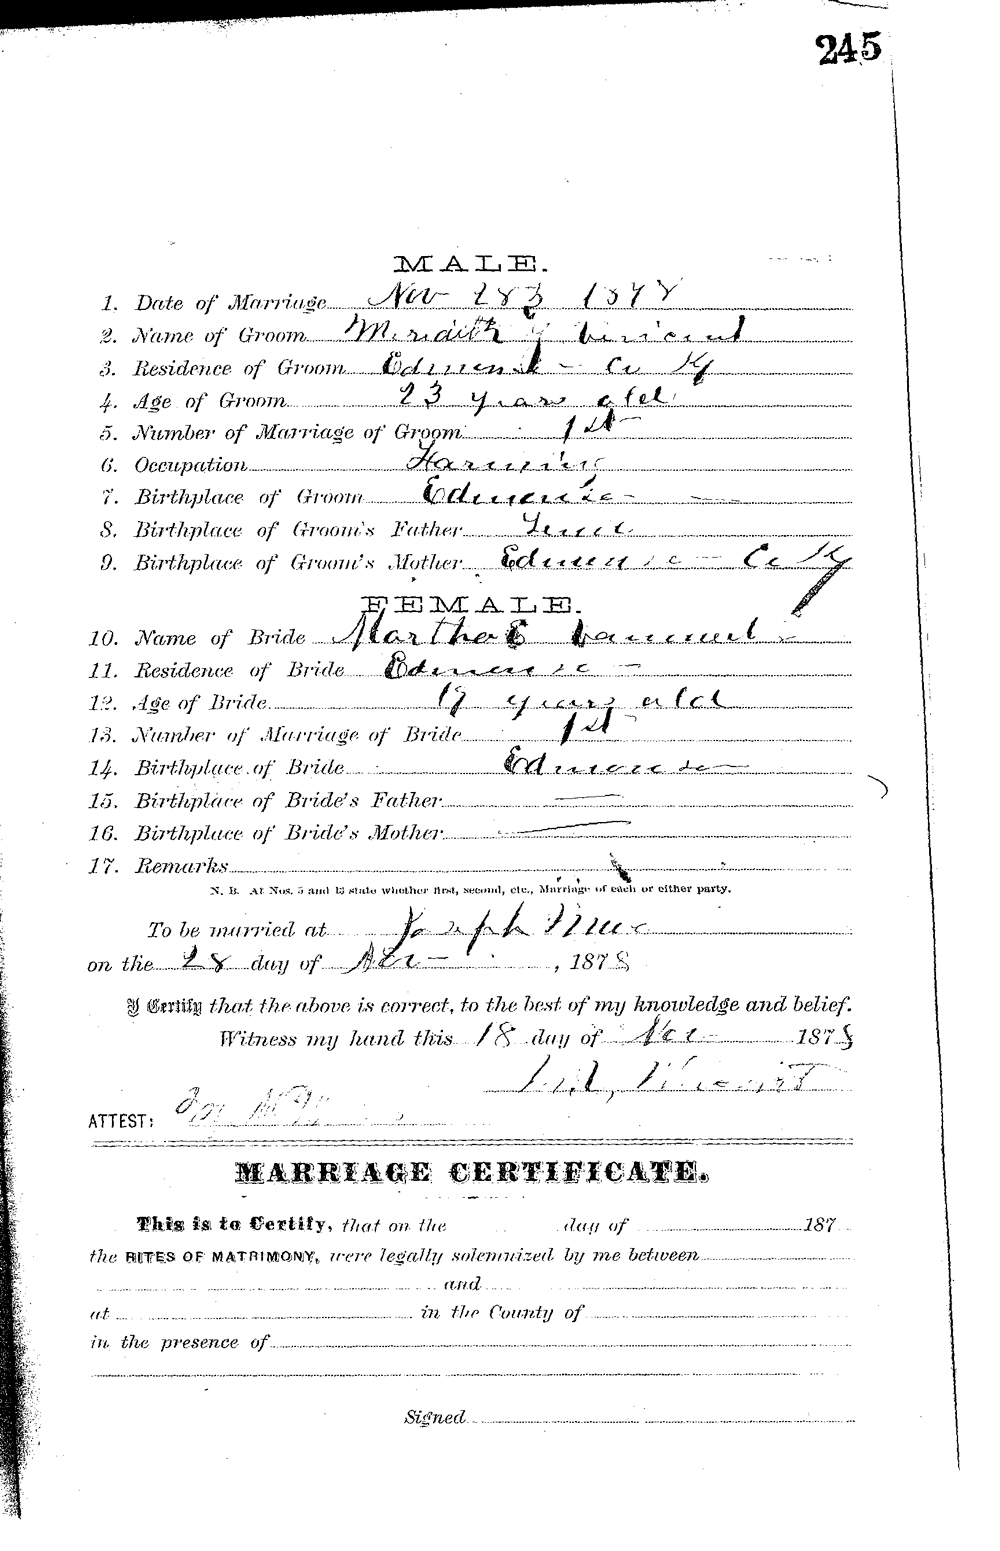 245
MALE.
1. Date of Marriage Nov 28 1878
2. Name of Groom Meridith Vincent
3. Residence of Groom Edmonson Co Ky
4. Age of Groom 23 years old
5. Number of Marriage of Groom 1st
6. Occupation Farming
7. Birthplace of Groom Edmonson
8. Birthplace of Groom's Father
9. Birthplace of Groom's Mother Edmonson Co Ky
FEMALE.
10. Name of Bride Martha E
11. Residence of Bride Edmonson
12. Age of Bride 19 years old
13. Number of Marriage of Bride 1st
14. Birthplace of Bride Edmonson
15. Birthplace of Bride's Father
16. Birthplace of Bride's Mother
17. Remarks
N. B. At Nos. 5 and 13 state whether first, second, etc., Marriage of each or either party.
To be married at Joseph
on the 28 day of Nov , 1878
I Certify that the above is correct, to the best of my knowledge and belief.
Witness my hand this 18 day of Nov 1878
Vincent
ATTEST:
MARRIAGE CERTIFICATE.
This is to Certify, that on the day of 187
the RITES OF MATRIMONY, were legally solemnized by me between
and
at in the County of
in the presence of
Signed